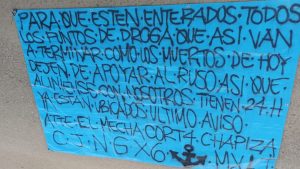 PARA QUE ESTEN ENTERADOS TODOS
LOS PUNTOS DE DROGA QUE ASI VAN
A TERMINAR COMO LOS MUERTOS DE HOY
DEJEN DE APOYAR AL RUSO ASI QUE
AL INIESE CON NOSOTROS TIENEN 24.H
YA ESTAN UBICADOS ULTIMO AVISO
ATTE EL MECHA CORTA CHAPIZA
C J N G X 6 M X L